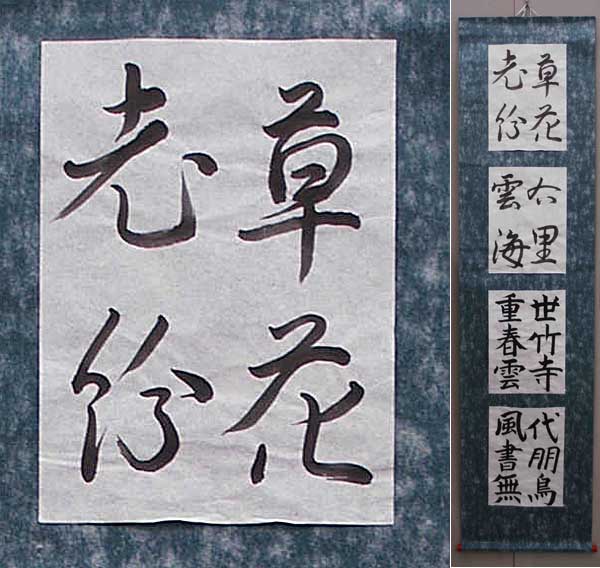 草花
老
草花
老
里
雲海
世竹寺
重春雲
代朋鳥
風書無